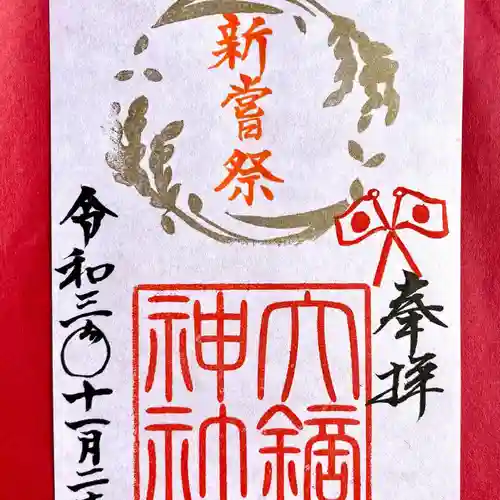 奉拝
新嘗祭
大鏑
神社
令和三年十一月二十